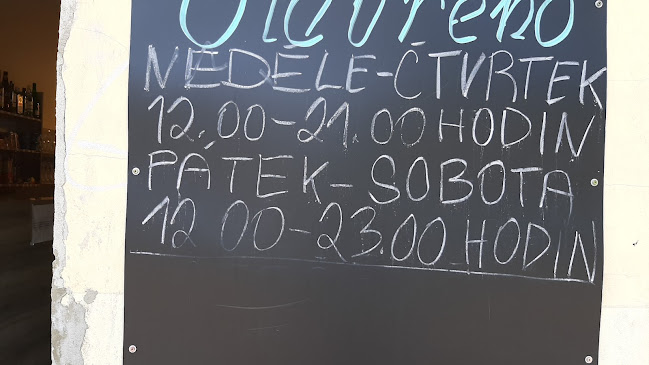 Otevřeno
NEDĚLE-ČTVRTEK
12.00-21.00 HODIN
PÁTEK-SOBOTA
12 00-23.00 HODIN